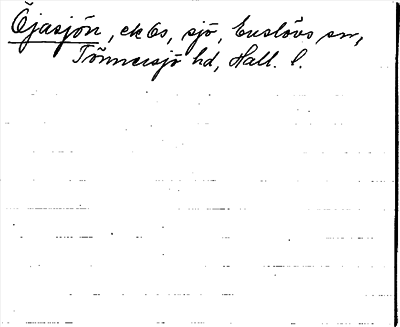 Öjasjön, ek 6s, sjö, Enslövs sn,
Tönnersjö hd, Hall. l.